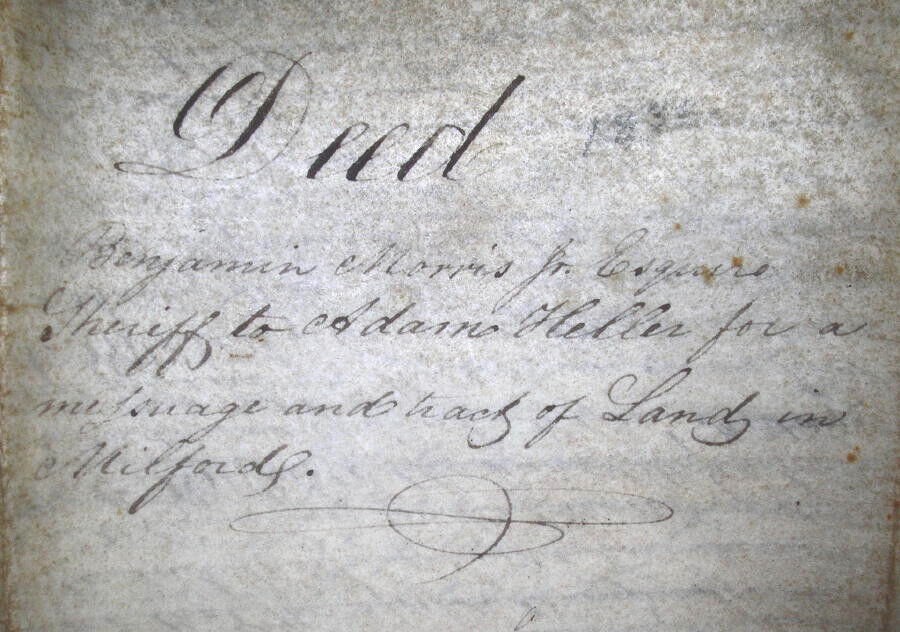 Deed
Benjamin Morris Jr. Esquire
Sheriff to Adam Heller for a
meſsuage and tract of Land in
Milford.